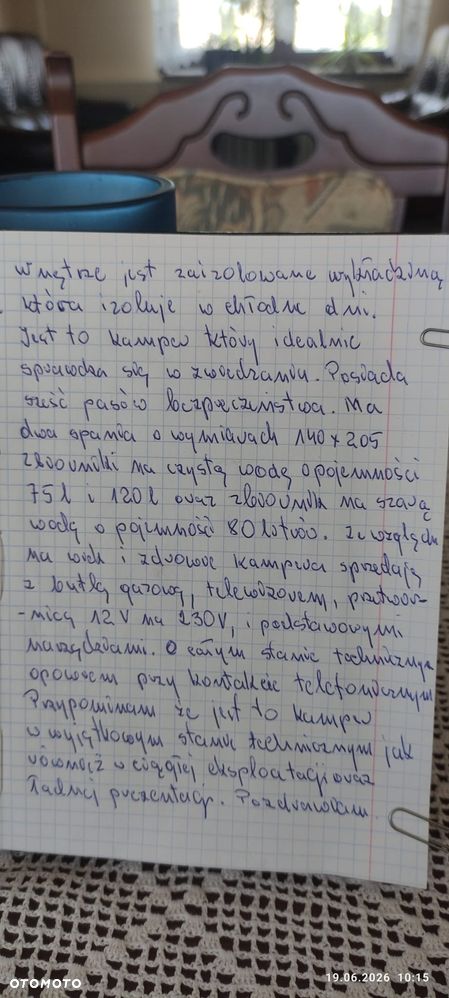 wnętrze jest zaizolowane wykładziną
która izoluje w chłodne dni.
Jest to kamper który idealnie
sprawdza się w zwiedzaniu. Posiada
sześć pasów bezpieczeństwa. Ma
dwa spania o wymiarach 140 x 205
zbiorniki na czystą wodę o pojemności
75 l i 120 l oraz zbiornik na szarą
wodę o pojemności 80 litrów. Ze względu
na wiek i zdrowie kampera sprzedaję
z butlą gazową, telewizorem, przetwor-
-nicą 12 V na 230V, i podstawowymi
narzędziami. O całym stanie technicznym
opowiem przy kontakcie telefonicznym
Przypominam że jest to kamper
w wyjątkowym stanie technicznym jak
również w ciągłej eksploatacji oraz
ładnej prezentacji. Pozdrawiam.
OTOMOTO
19.06.2026 10:15